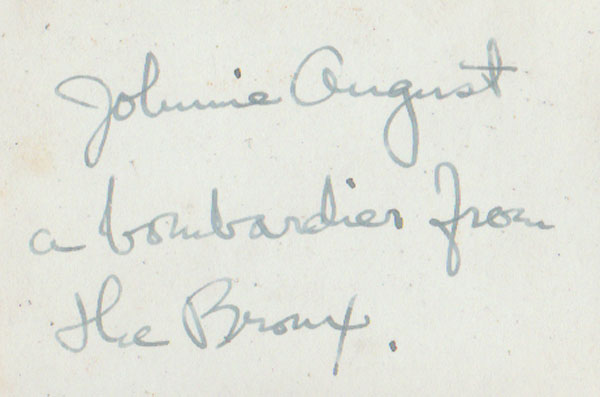 Johnnie August
a bombardier from
the Bronx.